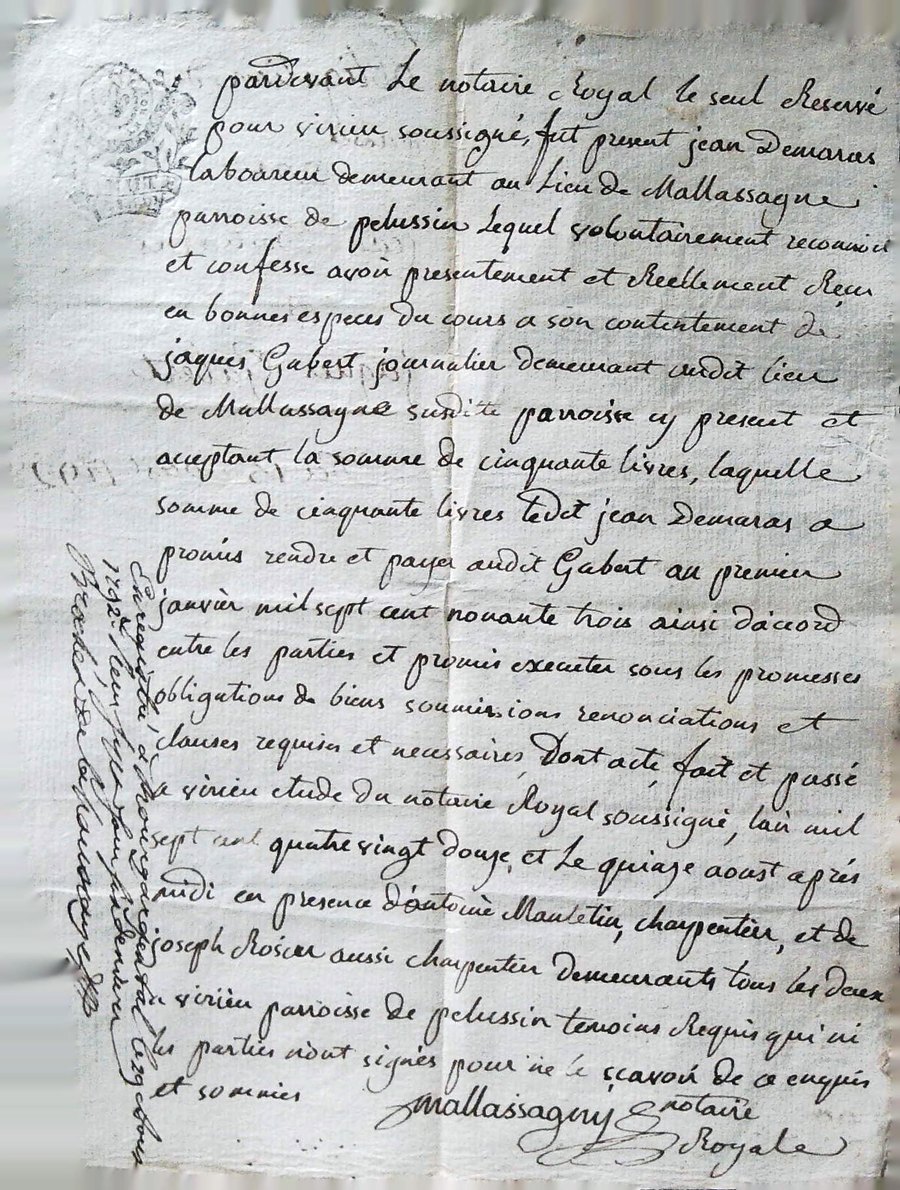 pardevant Le notaire Royal le seul Reservé
pour virieu soussigné, fut present jean Demaras
laboureur demeurant au Lieu de Mallassagne
parroisse de pelussin Lequel volontairement reconnoit
et confesse avoir presentement et Reellement Recu
en bonnes especes du cours a son contentement de
jaques Gabert journalier demeurant audit lieu
de Mallassagne susditte parroisse cy present et
acceptant la somme de cinquante livres, laquelle
somme de cinquante livres ledit jean Demaras a
promis rendre et payer audit Gabert au premier
janvier mil sept cent nonante trois ainsi d'acord
entre les parties et promis executer sous les promesses
obligations de biens soumissions renonciations et
clauses requises et necessaires, Dont acte, fait et passé
a virieu etude du notaire Royal soussigné, l'an mil
sept cent quatre vingt douze, et Le quinze aoust aprés
midi en presence d'antoine Manletin, charpentier, et de
joseph Rosier aussi charpentier demeurants tous les deux
a virieu parroisse de pelussin temoins Requis qui ni
les parties n'ont signés pour ne le sçavoir de ce enquis
et sommés
Mallassagny notaire
Royale
Enregistré a Bourgargental le
1792